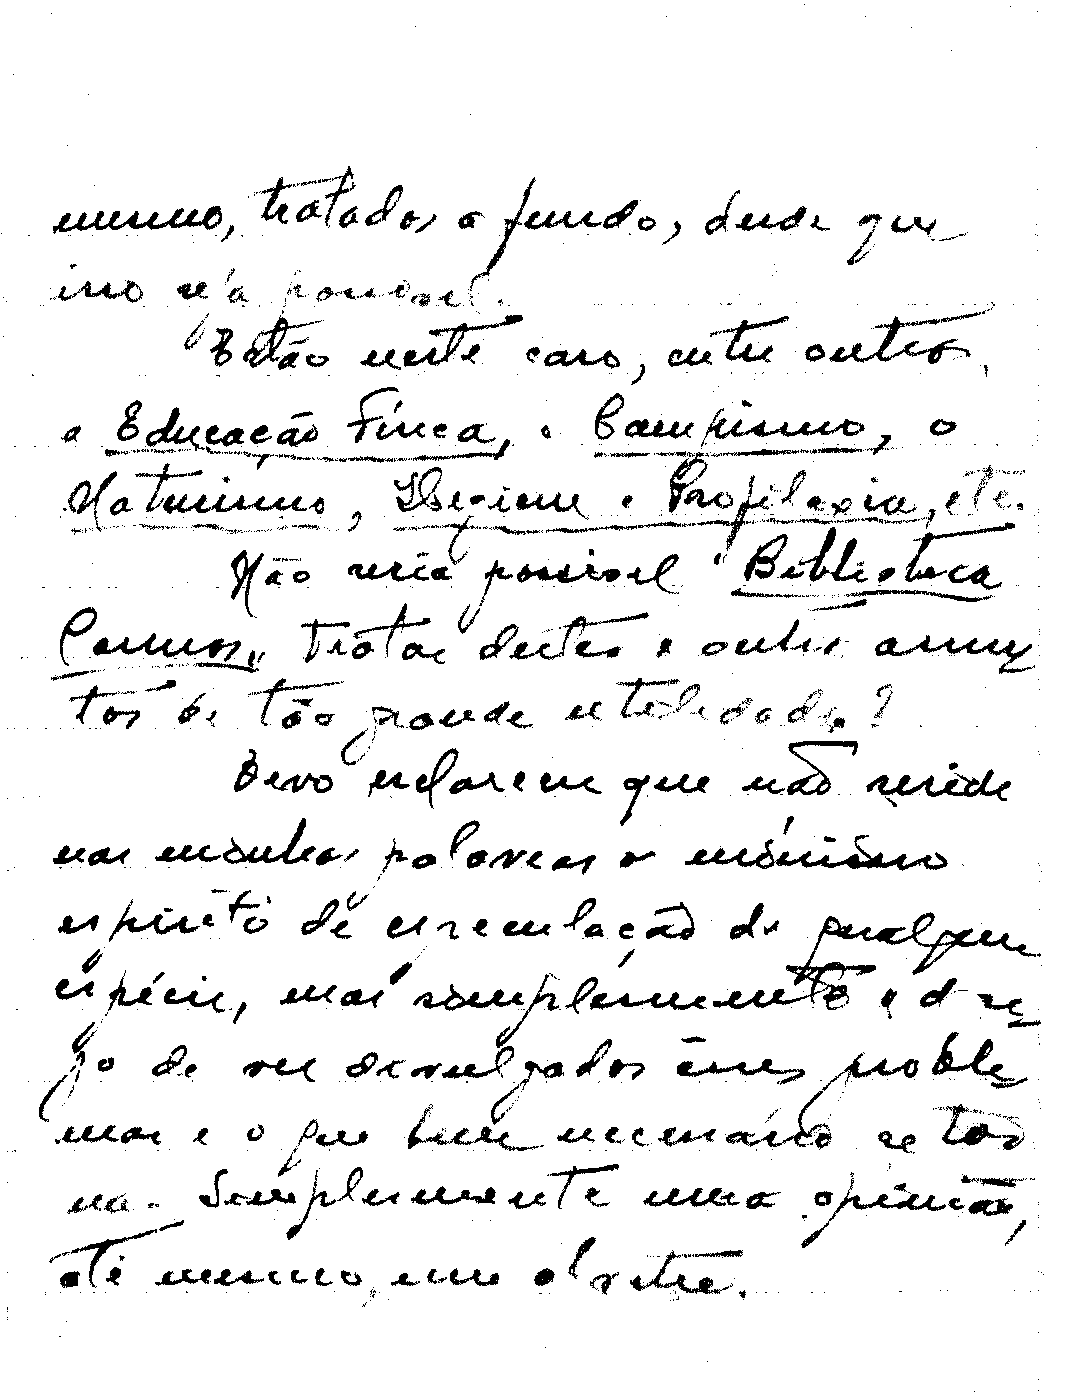 mesmo, tratados a fundo, desde que
isso seja possivel.
Estão neste caso, entre outros,
a Educação Física, o Campismo, o
Naturismo, Higiene e Profilaxia, etc.
Não seria possivel "Biblioteca
Cosmos" tratar destes e outros assun-
tos de tão grande utilidade?
Devo esclarecer que não reside
nas minhas palavras o minimo
espirito de especulação de qualquer
espécie, mas simplesmente o dese-
jo de ver divulgados êsses proble-
mas e o que bem necessário se tor-
na. Simplesmente uma opinião,
até mesmo, um alvitre.